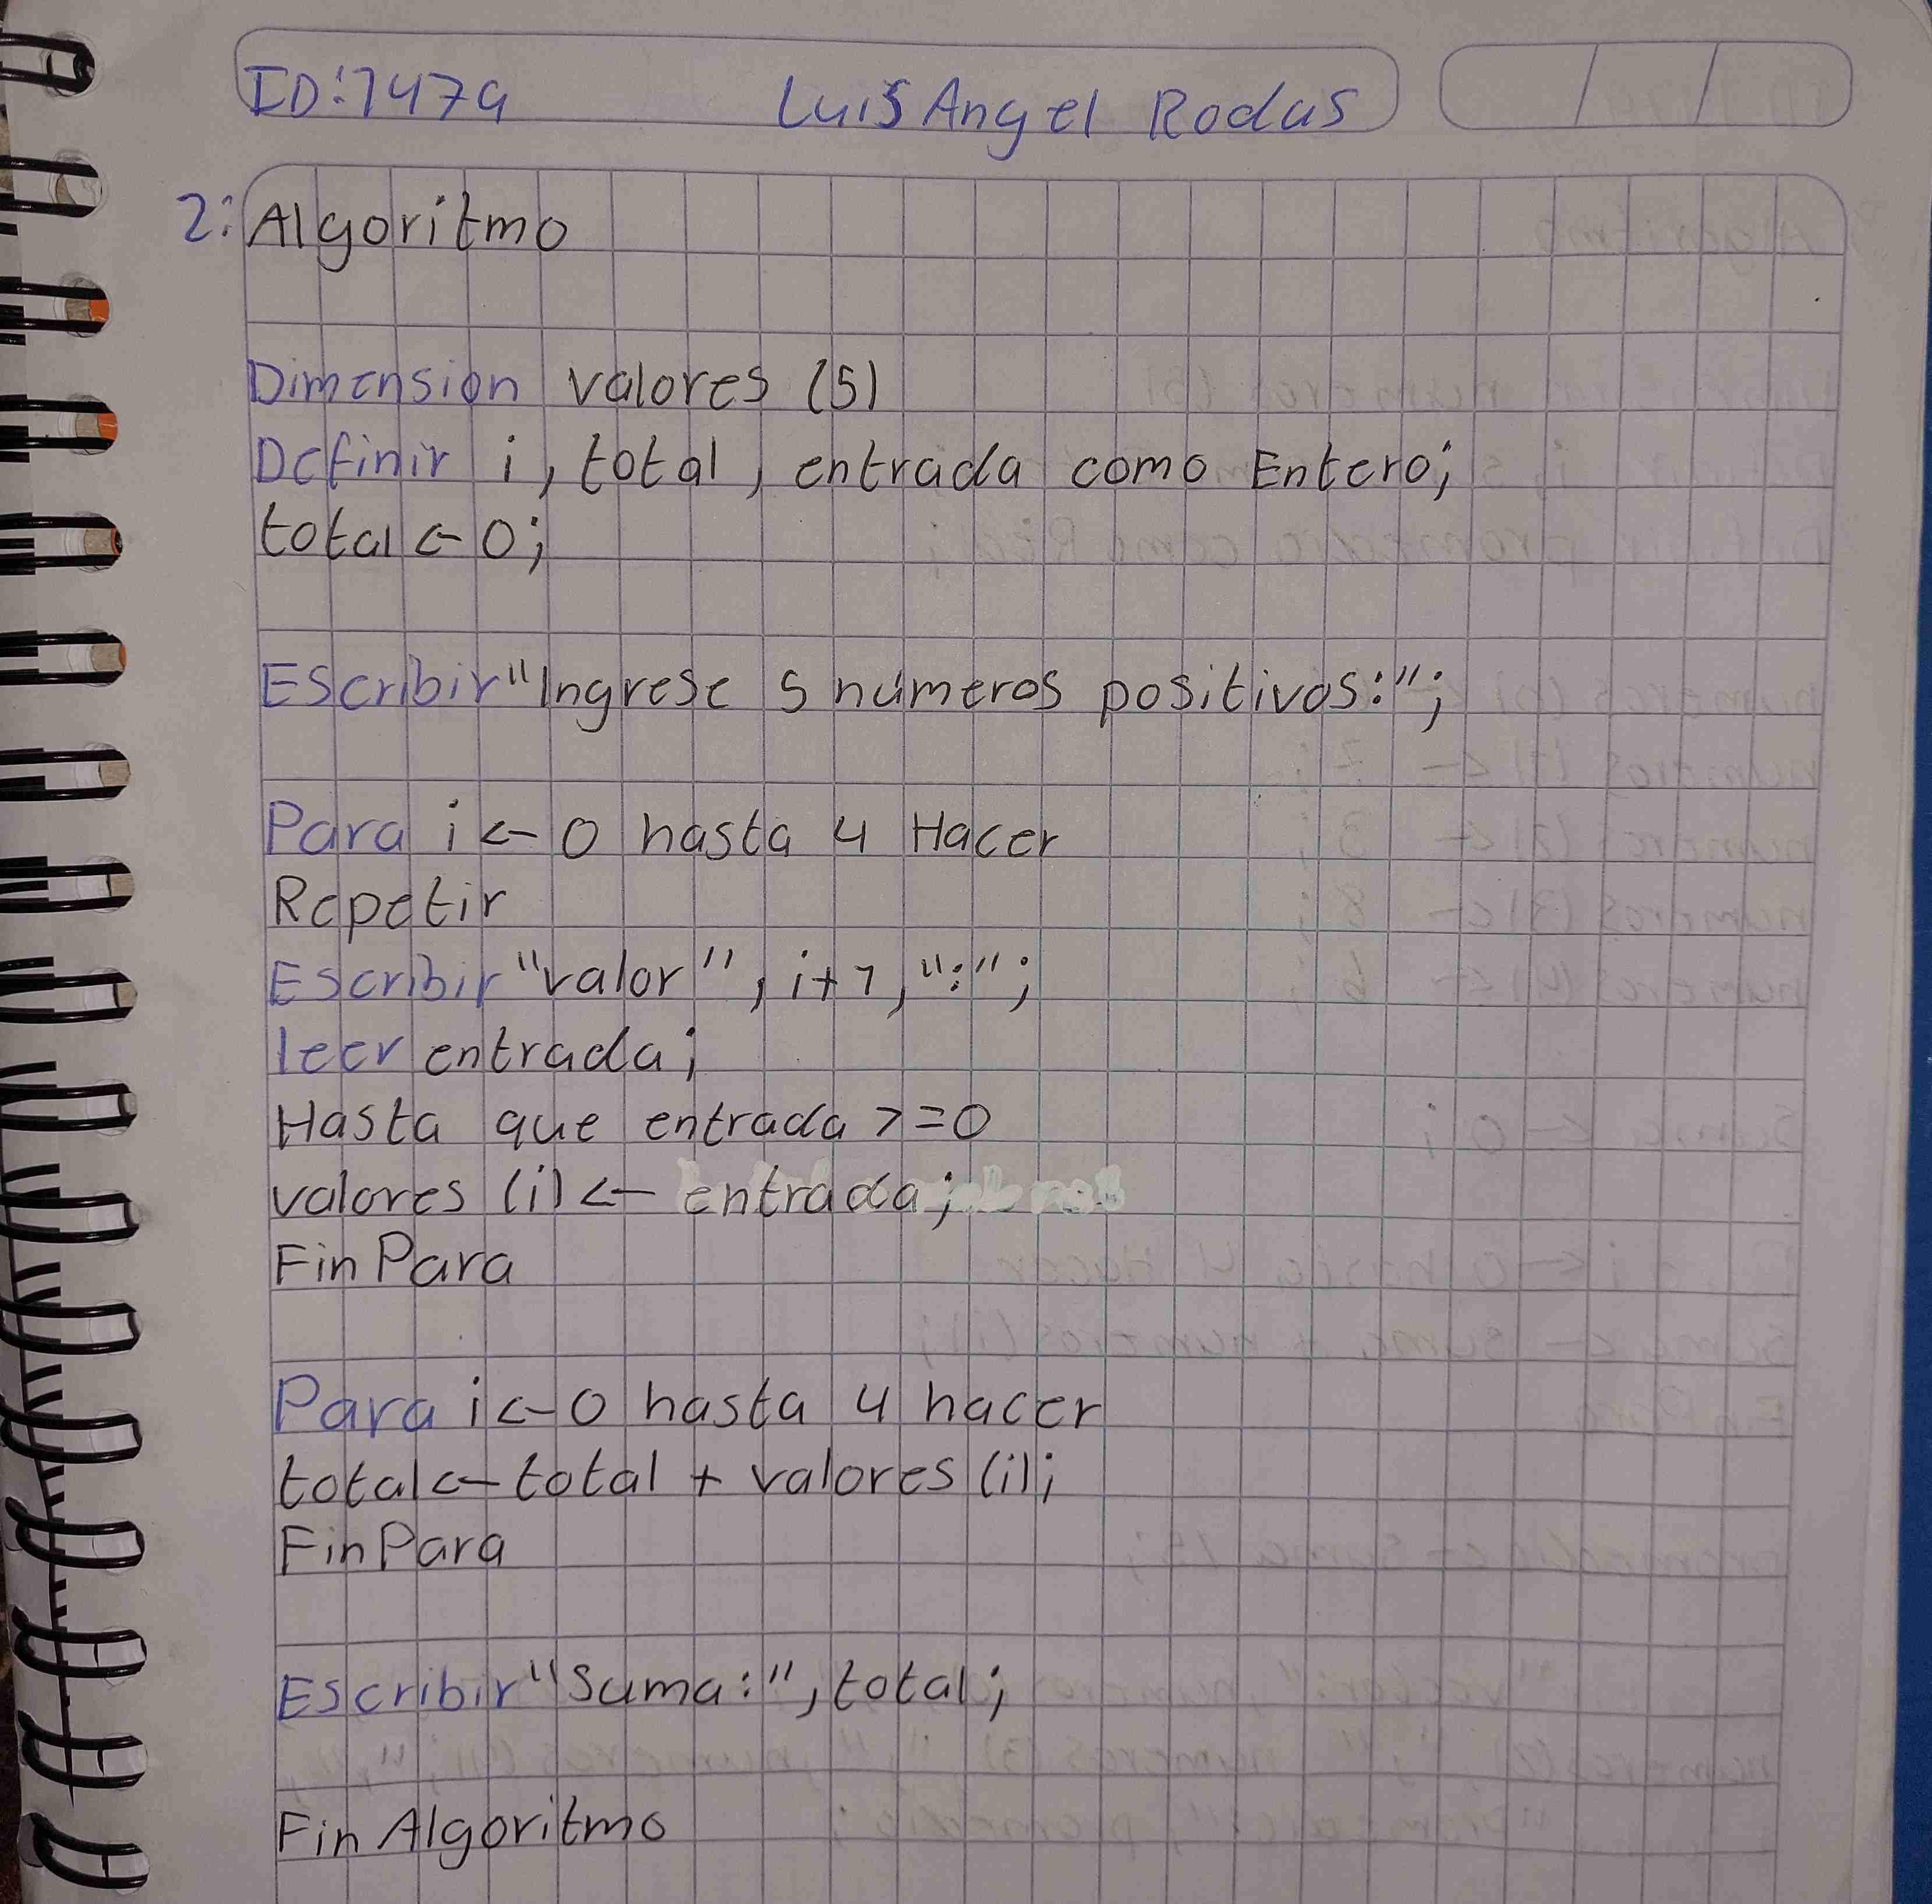 ID:1479 Luis Angel Rodas
2: Algoritmo
Dimension valores (5)
Definir i, total, entrada como Entero;
total <- 0;
Escribir "Ingrese 5 números positivos:";
Para i <- 0 hasta 4 Hacer
Repetir
Escribir "valor", i+1, ":";
leer entrada;
Hasta que entrada >=0
valores (i) <- entrada;
Fin Para
Para i <- 0 hasta 4 hacer
total <- total + valores (i);
Fin Para
Escribir "Suma:", total;
Fin Algoritmo